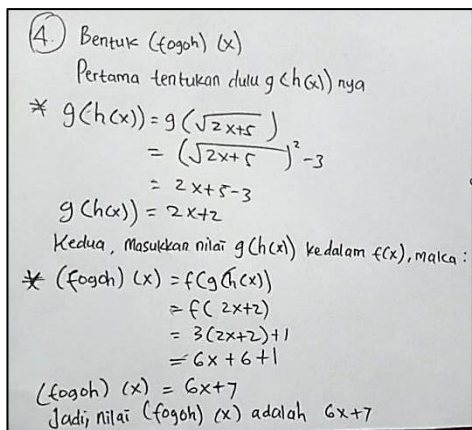 4. Bentuk (fogoh) (x)
Pertama tentukan dulu g(h(x)) nya
* g(h(x)) = g(√2x+5)
= (√2x+5)² -3
= 2x+5-3
g(h(x)) = 2x+2
Kedua, Masukkan nilai g(h(x)) kedalam f(x), maka :
* (fogoh) (x) = f(g(h(x))
= f( 2x+2)
= 3(2x+2)+1
= 6x+6+1
(fogoh) (x) = 6x+7
Jadi, nilai (fogoh) (x) adalah 6x+7